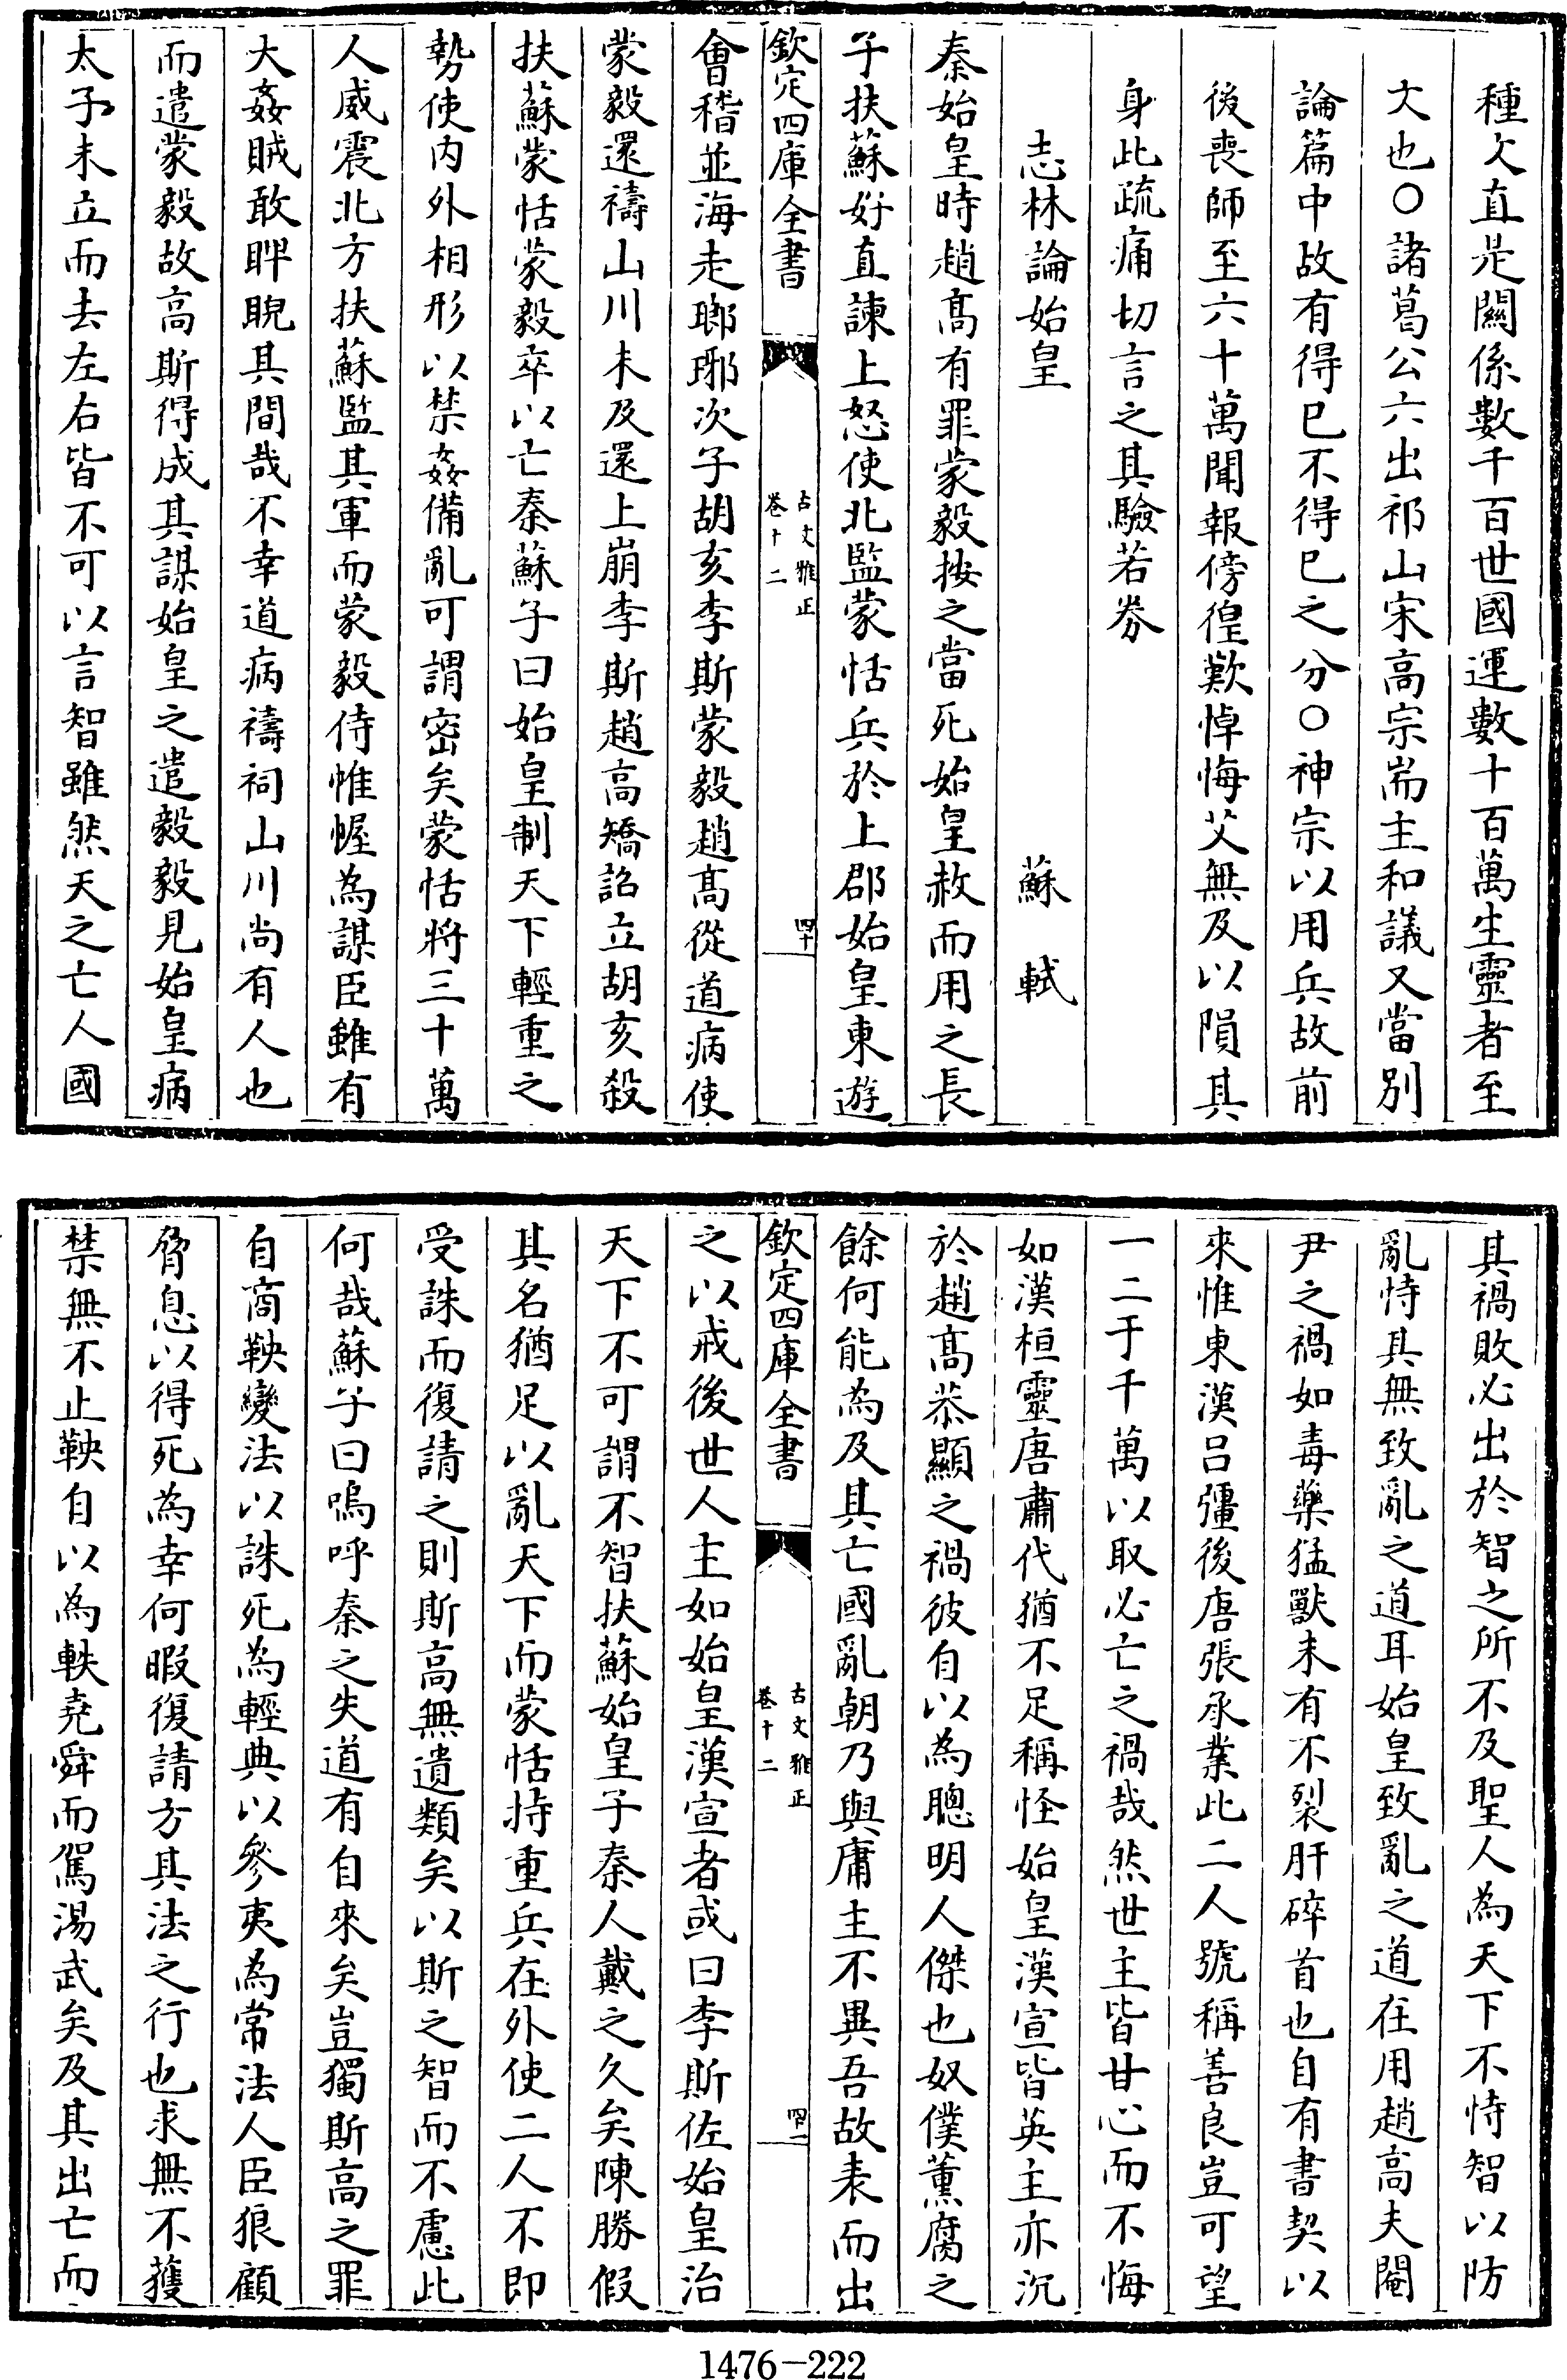 種欠直是關係數千百世國運數十百萬生靈者至
大也〇諸葛公六出祁山宋高宗耑主和議又當別
論篇中故有得已不得已之分〇神宗以用兵故前
後喪師至六十萬聞報傍徨歎悼悔艾無及以隕其
身此疏痛切言之其驗若券
志林論始皇 蘇軾
秦始皇時趙髙有罪蒙毅按之當死始皇赦而用之長
子扶蘇好直諫上怒使北監蒙恬兵於上郡始皇東遊
欽定四庫全書 古文雅正 卷十二 四十
會稽並海走瑯琊次子胡亥李斯蒙毅趙髙從道病使
蒙毅還禱山川未及還上崩李斯趙高矯詔立胡亥殺
扶蘇蒙恬蒙毅卒以亡秦蘇子曰始皇制天下輕重之
勢使内外相形以禁姦備亂可謂密矣蒙恬將三十萬
人威震北方扶蘇監其軍而蒙毅侍帷幄為謀臣雖有
大姦賊敢睥睨其間哉不幸道病禱祠山川尚有人也
而遣蒙毅故高斯得成其謀始皇之遣毅毅見始皇病
太子未立而去左右皆不可以言智雖然天之亡人國
其禍敗必出於智之所不及聖人為天下不恃智以防
亂恃其無致亂之道耳始皇致亂之道在用趙高夫閹
尹之禍如毒藥猛獸未有不裂肝碎首也自有書契以
來惟東漢吕彊後唐張承業此二人號稱善良豈可望
一二于千萬以取必亡之禍哉然世主皆甘心而不悔
如漢桓靈唐肅代猶不足稱怪始皇漢宣皆英主亦沉
於趙髙恭顯之禍彼自以為聰明人傑也奴僕薰腐之
餘何能為及其亡國亂朝乃與庸主不異吾故表而出
欽定四庫全書 古文雅正 卷十二 四十一
之以戒後世人主如始皇漢宣者或曰李斯佐始皇治
天下不可謂不智扶蘇始皇子秦人戴之久矣陳勝假
其名猶足以亂天下而蒙恬持重兵在外使二人不即
受誅而復請之則斯高無遺類矣以斯之智而不慮此
何哉蘇子曰嗚呼秦之失道有自來矣豈獨斯高之罪
自商鞅變法以誅死為輕典以參夷為常法人臣狼顧
脅息以得死為幸何暇復請方其法之行也求無不獲
禁無不止鞅自以為軼堯舜而駕湯武矣及其出亡而
1476-222